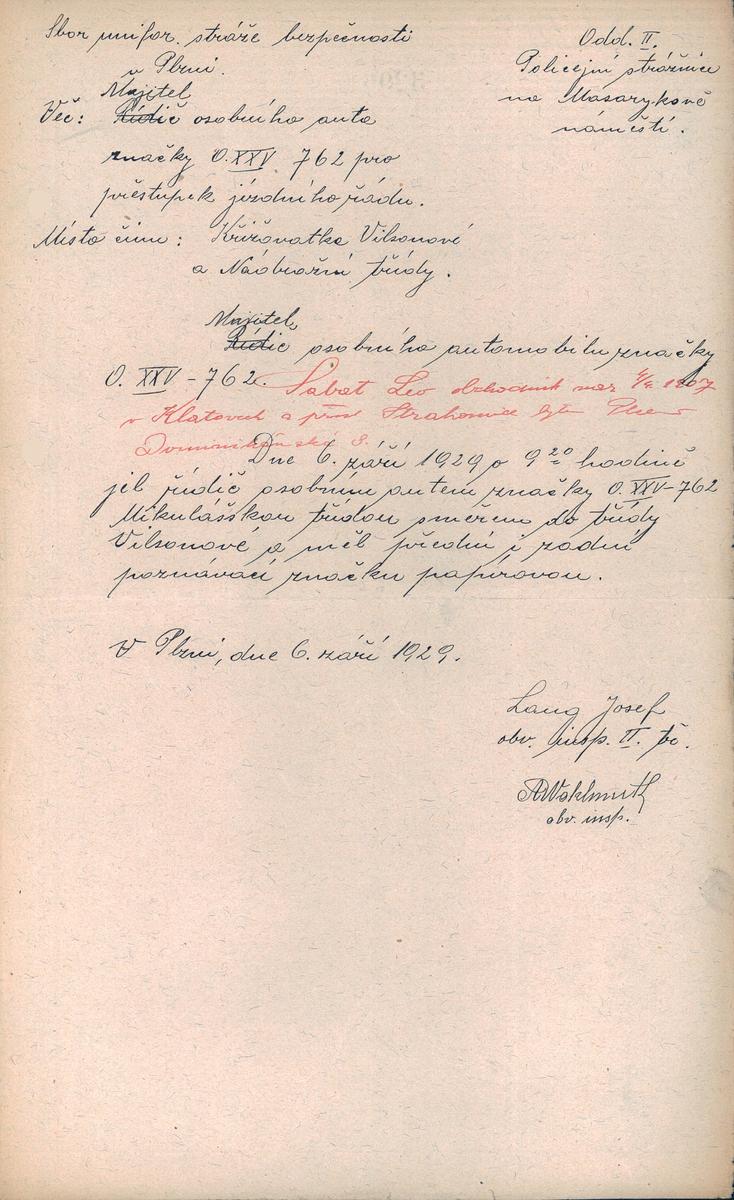 Sbor unifor. stráže bezpečnosti
v Plzni.
Odd. II.
Policejní strážnice
na Masarykově
náměstí.
Majitel
Věc: Řidič osobního auta
značky O.XXV 762 pro
přestupek jízdního řádu.
Místo činu: Křižovatka Vilsonové
a Nádražní třídy.
Majitel
Řidič osobního automobilu značky
O. XXV - 762. Sabat Leo obchodník nar. 1907
v Klatovech a přísl. Strahonice bytem Plzeň
Dominikánská 8.
Dne 6. září 1929 o 9 20 hodině
jel řidič osobním autem značky O. XXV-762
Mikulášskou třídou směrem do třídy
Vilsonové a měl přední i zadní
poznávací značku papírovou.
V Plzni, dne 6. září 1929.
Lang Josef
obv. insp. II. tř.
AWohlmuth
obv. insp.